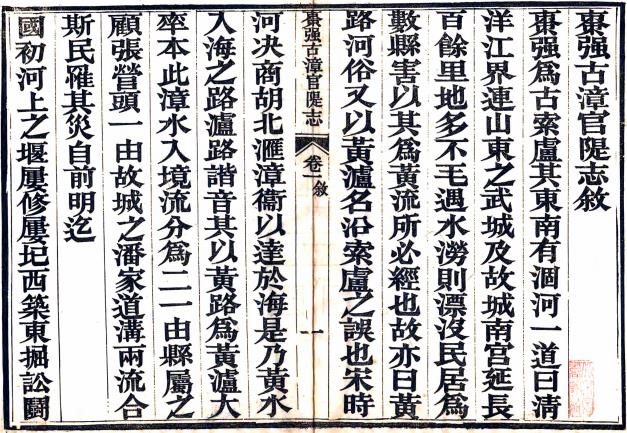 棗强古漳官隄志敘
棗强爲古索盧其東南有涸河一道曰清
洋江界連山東之武城及故城南宫延長
百餘里地多不毛遇水澇則漂沒民居爲
數縣害以其爲黃流所必經也故亦曰黃
路河俗又以黃瀘名沿索盧之誤也宋時
棗强古漳官隄志
卷一敘
一
河决商胡北滙漳衞以達於海是乃黃水
入海之路瀘路諧音其以黃路爲黃瀘大
率本此漳水入境流分爲二一由縣屬之
顧張營頭一由故城之潘家道溝兩流合
斯民罹其災自前明迄
國初河上之堰屢修屢圮西築東掘訟鬭